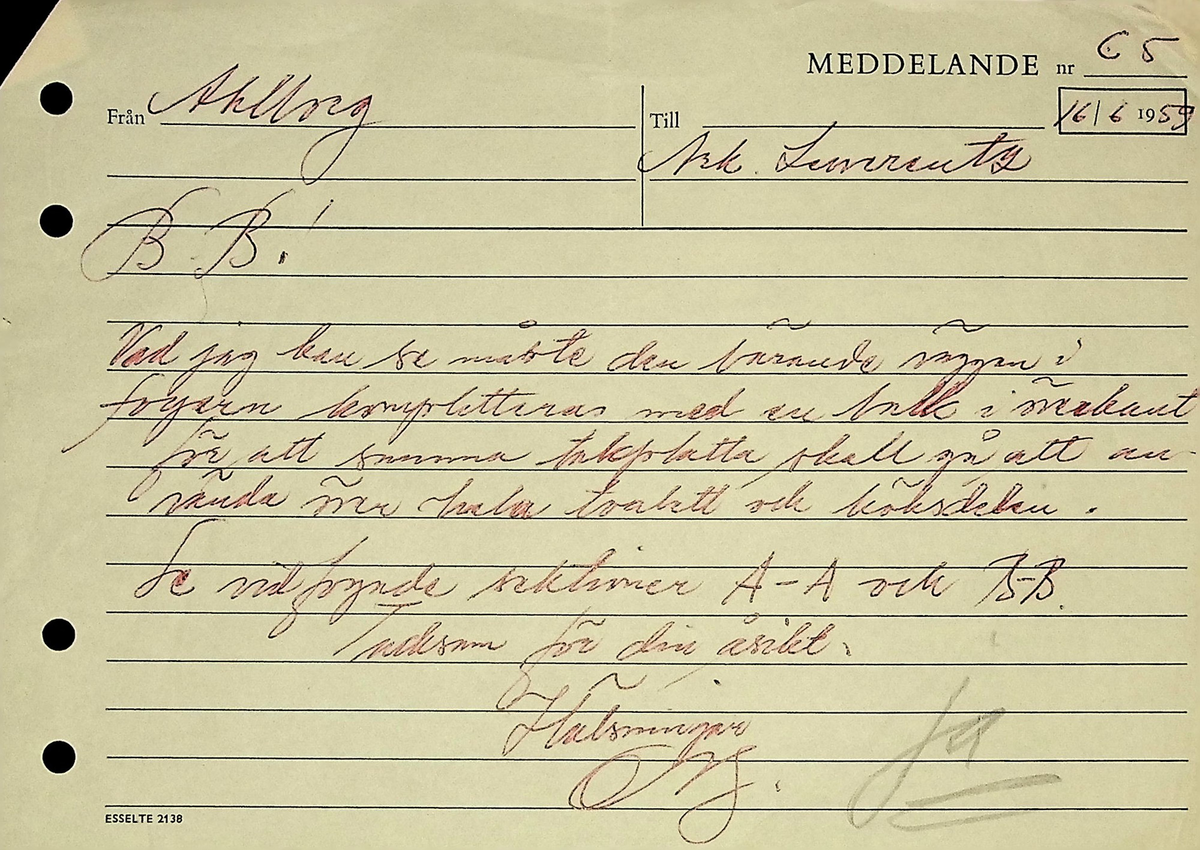 MEDDELANDE nr C 5
Från Ahlborg Till 16/6 1959
Ark. Lewerentz
B. B!
Vad jag kan se måste den bärande väggen i
foyern kompletteras med en balk i överkant
för att samma takplatta skall gå att an-
vända över hela toalett och köksdelen.
Se vidfogade sektioner A-A och B-B.
Tacksam för din åsikt.
Hälsningar
Ja
ESSELTE 2138